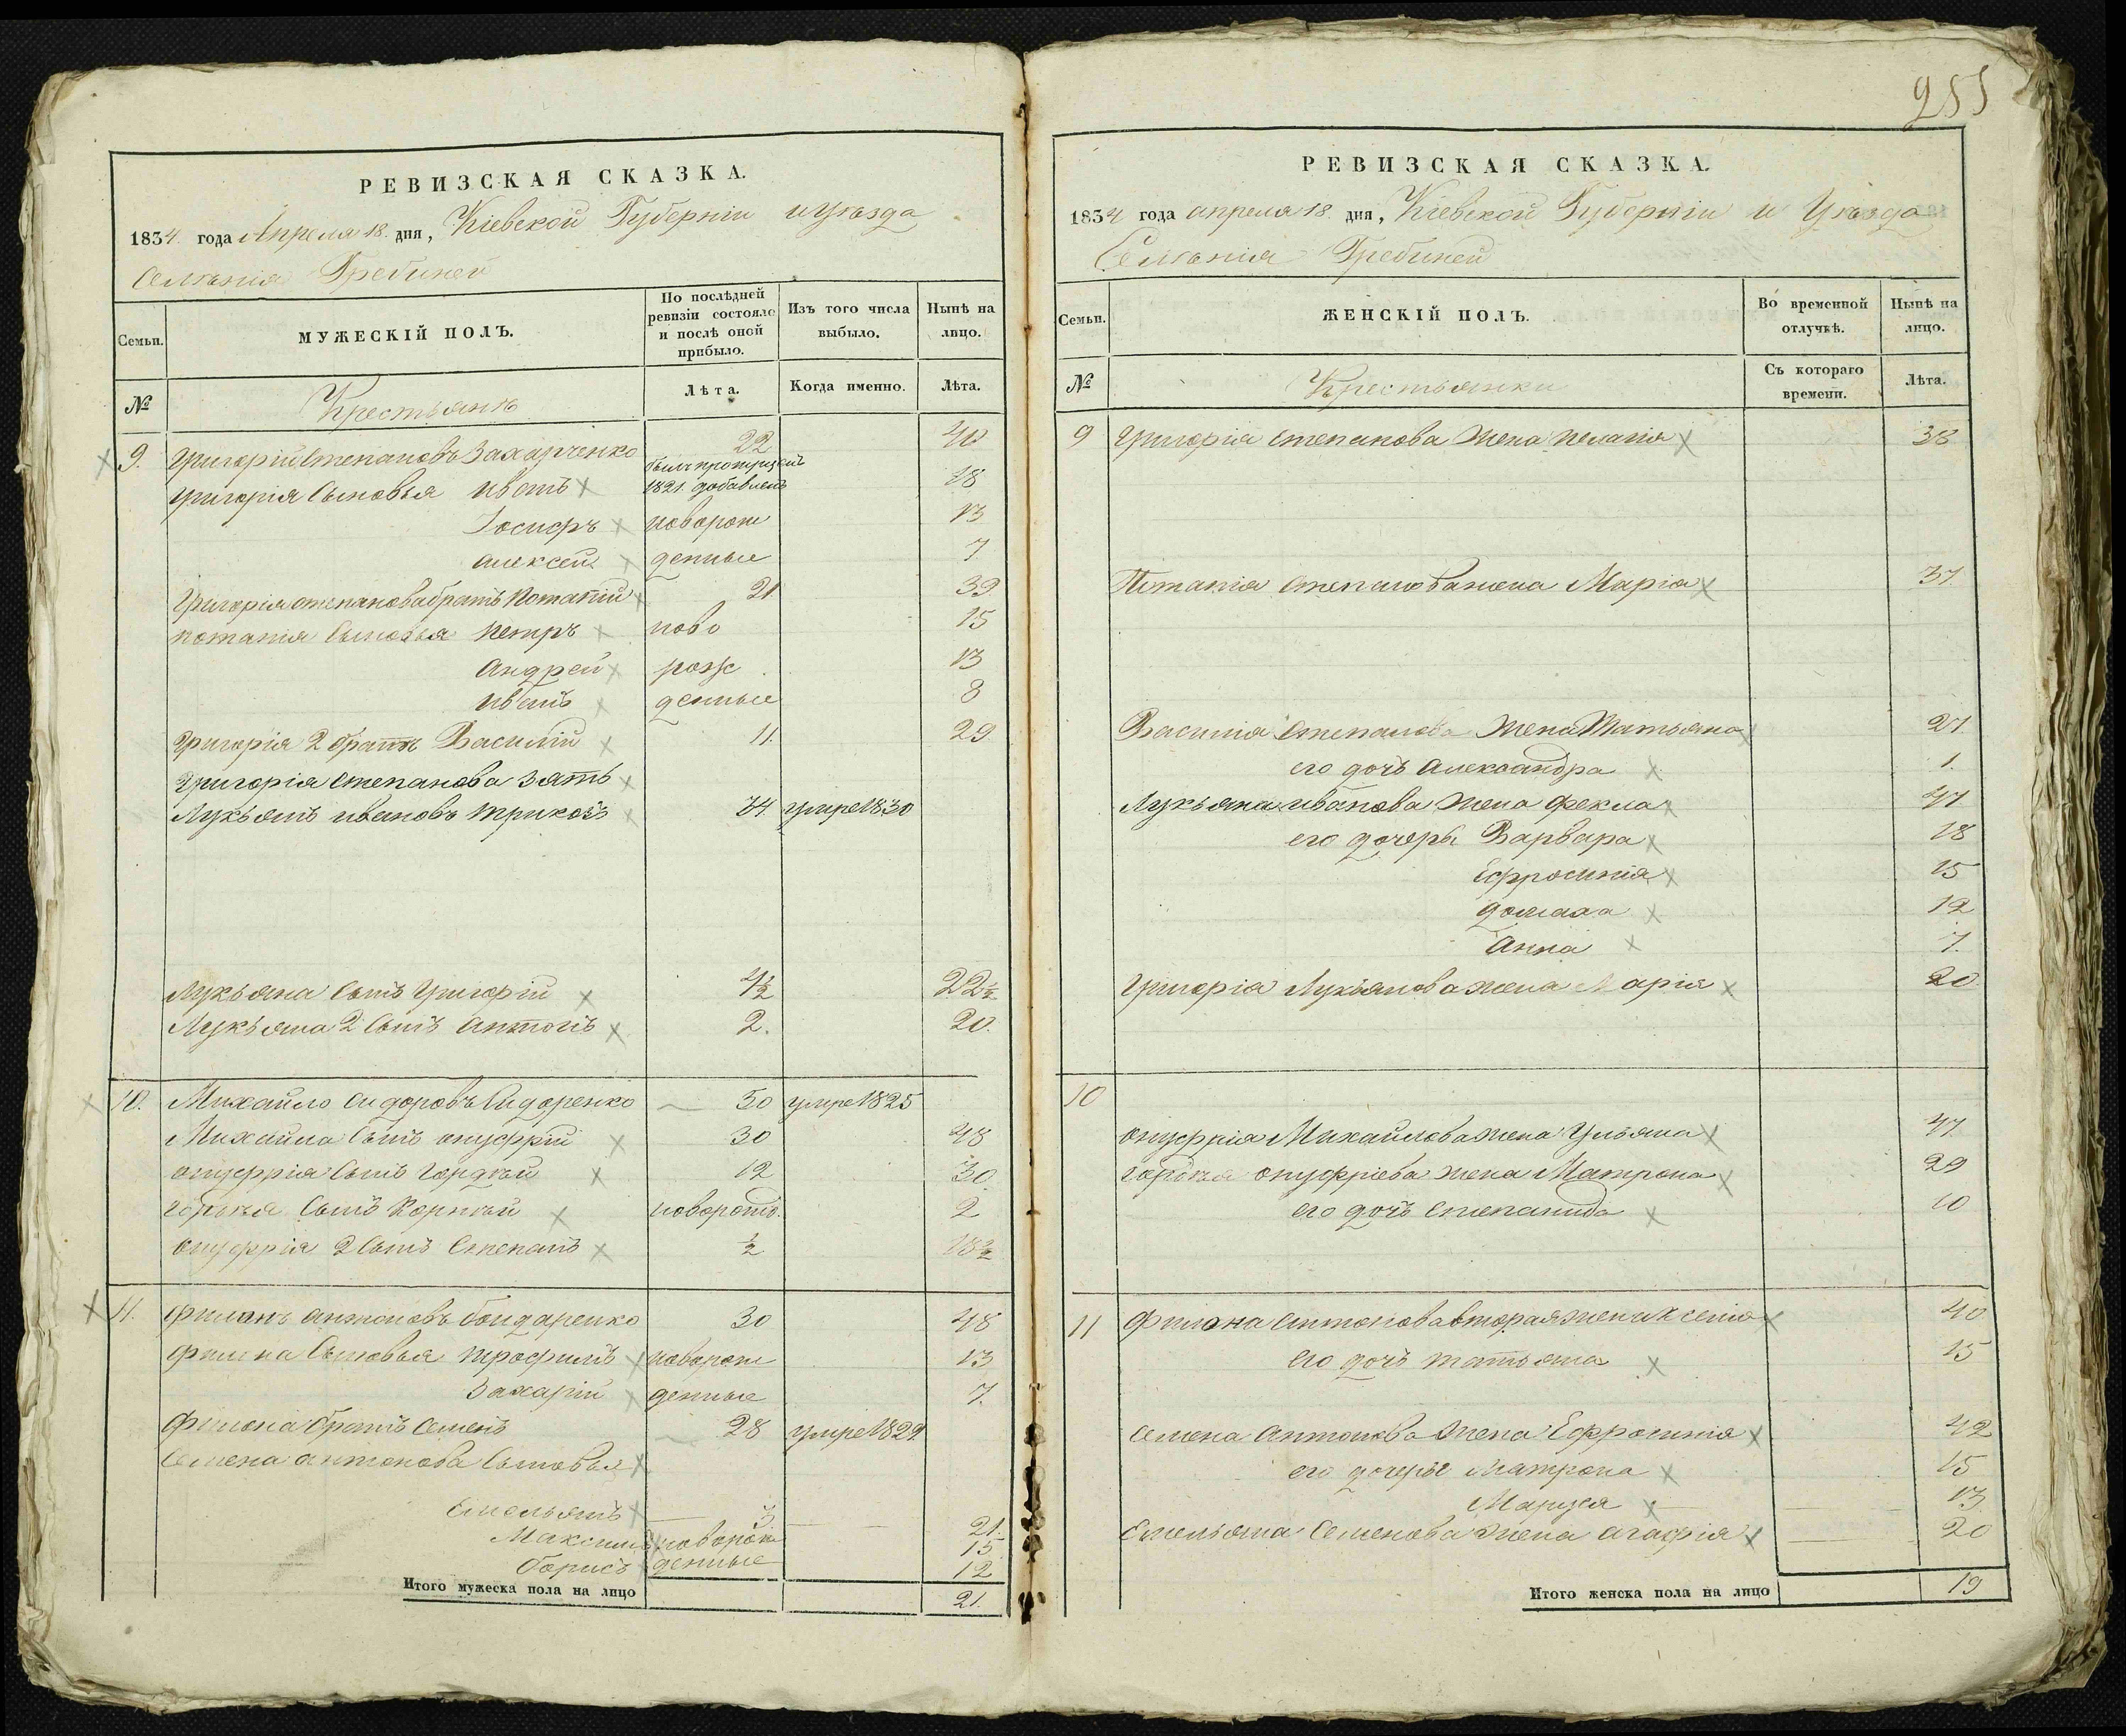 РЕВИЗСКАЯ СКАЗКА.
1834 года Апреля 18. дня, Кіевской Губерніи и уѣзда
Селѣнія Гребиней
Семьи.
МУЖЕСКІЙ ПОЛЪ.
По послѣдней ревизіи состояло и послѣ оной прибыло.
Изъ того числа выбыло.
Нынѣ на лицо.
№
Крестьянѣ
Лѣта.
Когда именно.
Лѣта.
9. Григорій Степановъ Захарченко 22 40
Григорія Сыновья Иванъ 1821. добавленъ 18
Іосифъ новорож 13
Алексей денные 7
Григорія степанова братъ Потапій 21 39
потапія Сыновья Петръ ново 15
Андрей рож 13
Иванъ денные 8
Григорія 2 братъ Василій 11. 29
Григорія Степанова зять
Лукьянъ ивановъ 34 умре 1830
Лукьяна Сынъ Григорій 4½ 22½
Лукьяна 2 Сынъ Антонъ 2. 20.
10. Михайло Сидоровъ Сидоренко 30 умре 1825
Михайла Сынъ онуфрій 30 48
онуфрія Сынъ Гордѣй 12 30
Гордѣя Сынъ Корнѣй новорожд. 2
онуфрія 2 Сынъ Степанъ ½ 18½
11. Филонъ антоновъ бондаренко 30 48
Филона Сыновья трофимъ новорож 13
Захарій денные 7.
Филона братъ Семенъ 28 умре 1829
Семена антонова Сыновья
Емельянъ 3 21.
Максимъ новорож 15
борисъ денные 12
Итого мужеска пола на лицо 21.
255
РЕВИЗСКАЯ СКАЗКА.
1834 года апреля 18. дня, Кіевской Губерніи и Уѣзда
Селѣнія Гребиней
Семьи.
ЖЕНСКІЙ ПОЛЪ.
Во временной отлучкѣ.
Нынѣ на лицо.
№
Крестьянки
Съ котораго времени.
Лѣта.
9 Григорія степанова жена пелагія 38
Потапія степанова жена Марія 37
Василія степанова жена Татьяна 27.
его дочь Александра 1.
Лукьяна иванова жена Фекла 47
его дочеры Варвара 18
Ефросинія 15
домаха 12
Анна 7.
Григорія Лукьянова жена Марія 20
10
онуфрія Михайлова жена Ульяна 47
гордѣя онуфріева жена Матрона 29
его дочь степанида 10
11 Филона антонова вторая жена Ксенія 40
его дочь татьяна 15
Семена антонова жена Ефросинія 42
его дочеры Матрона 15
Маруся 13
Емельяна Семенова жена агафія 20
Итого женска пола на лицо 19